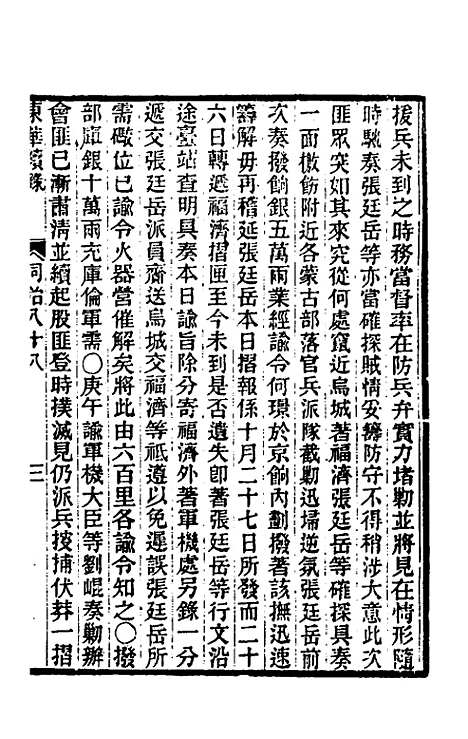 援兵未到之時務當督率在防兵弁實力堵勦並將見在情形隨
時馳奏張廷岳等亦當確探賊情妥籌防守不得稍涉大意此次
匪眾突如其來究從何處竄近烏城著福濟張廷岳等確探具奏
一面檄飭附近各蒙古部落官兵派隊截勦迅埽逆氛張廷岳前
次奏撥餉銀五萬兩業經諭令何璟於京餉內劃撥著該撫迅速
籌解毋再稽延張廷岳本日摺報係十月二十七日所發而二十
六日轉遞福濟摺匣至今未到是否遺失卽著張廷岳等行文沿
途臺站查明具奏本日諭旨除分寄福濟外著軍機處另錄一分
遞交張廷岳派員齎送烏城交福濟等祗遵以免遲誤張廷岳所
需礮位已諭令火器營催解矣將此由六百里各諭令知之〇撥
部庫銀十萬兩充庫倫軍需〇庚午諭軍機大臣等劉崐奏勦辦
會匪已漸肅清並續起股匪登時撲滅見仍派兵按捕伏莽一摺
東華續錄 同治八十八 三